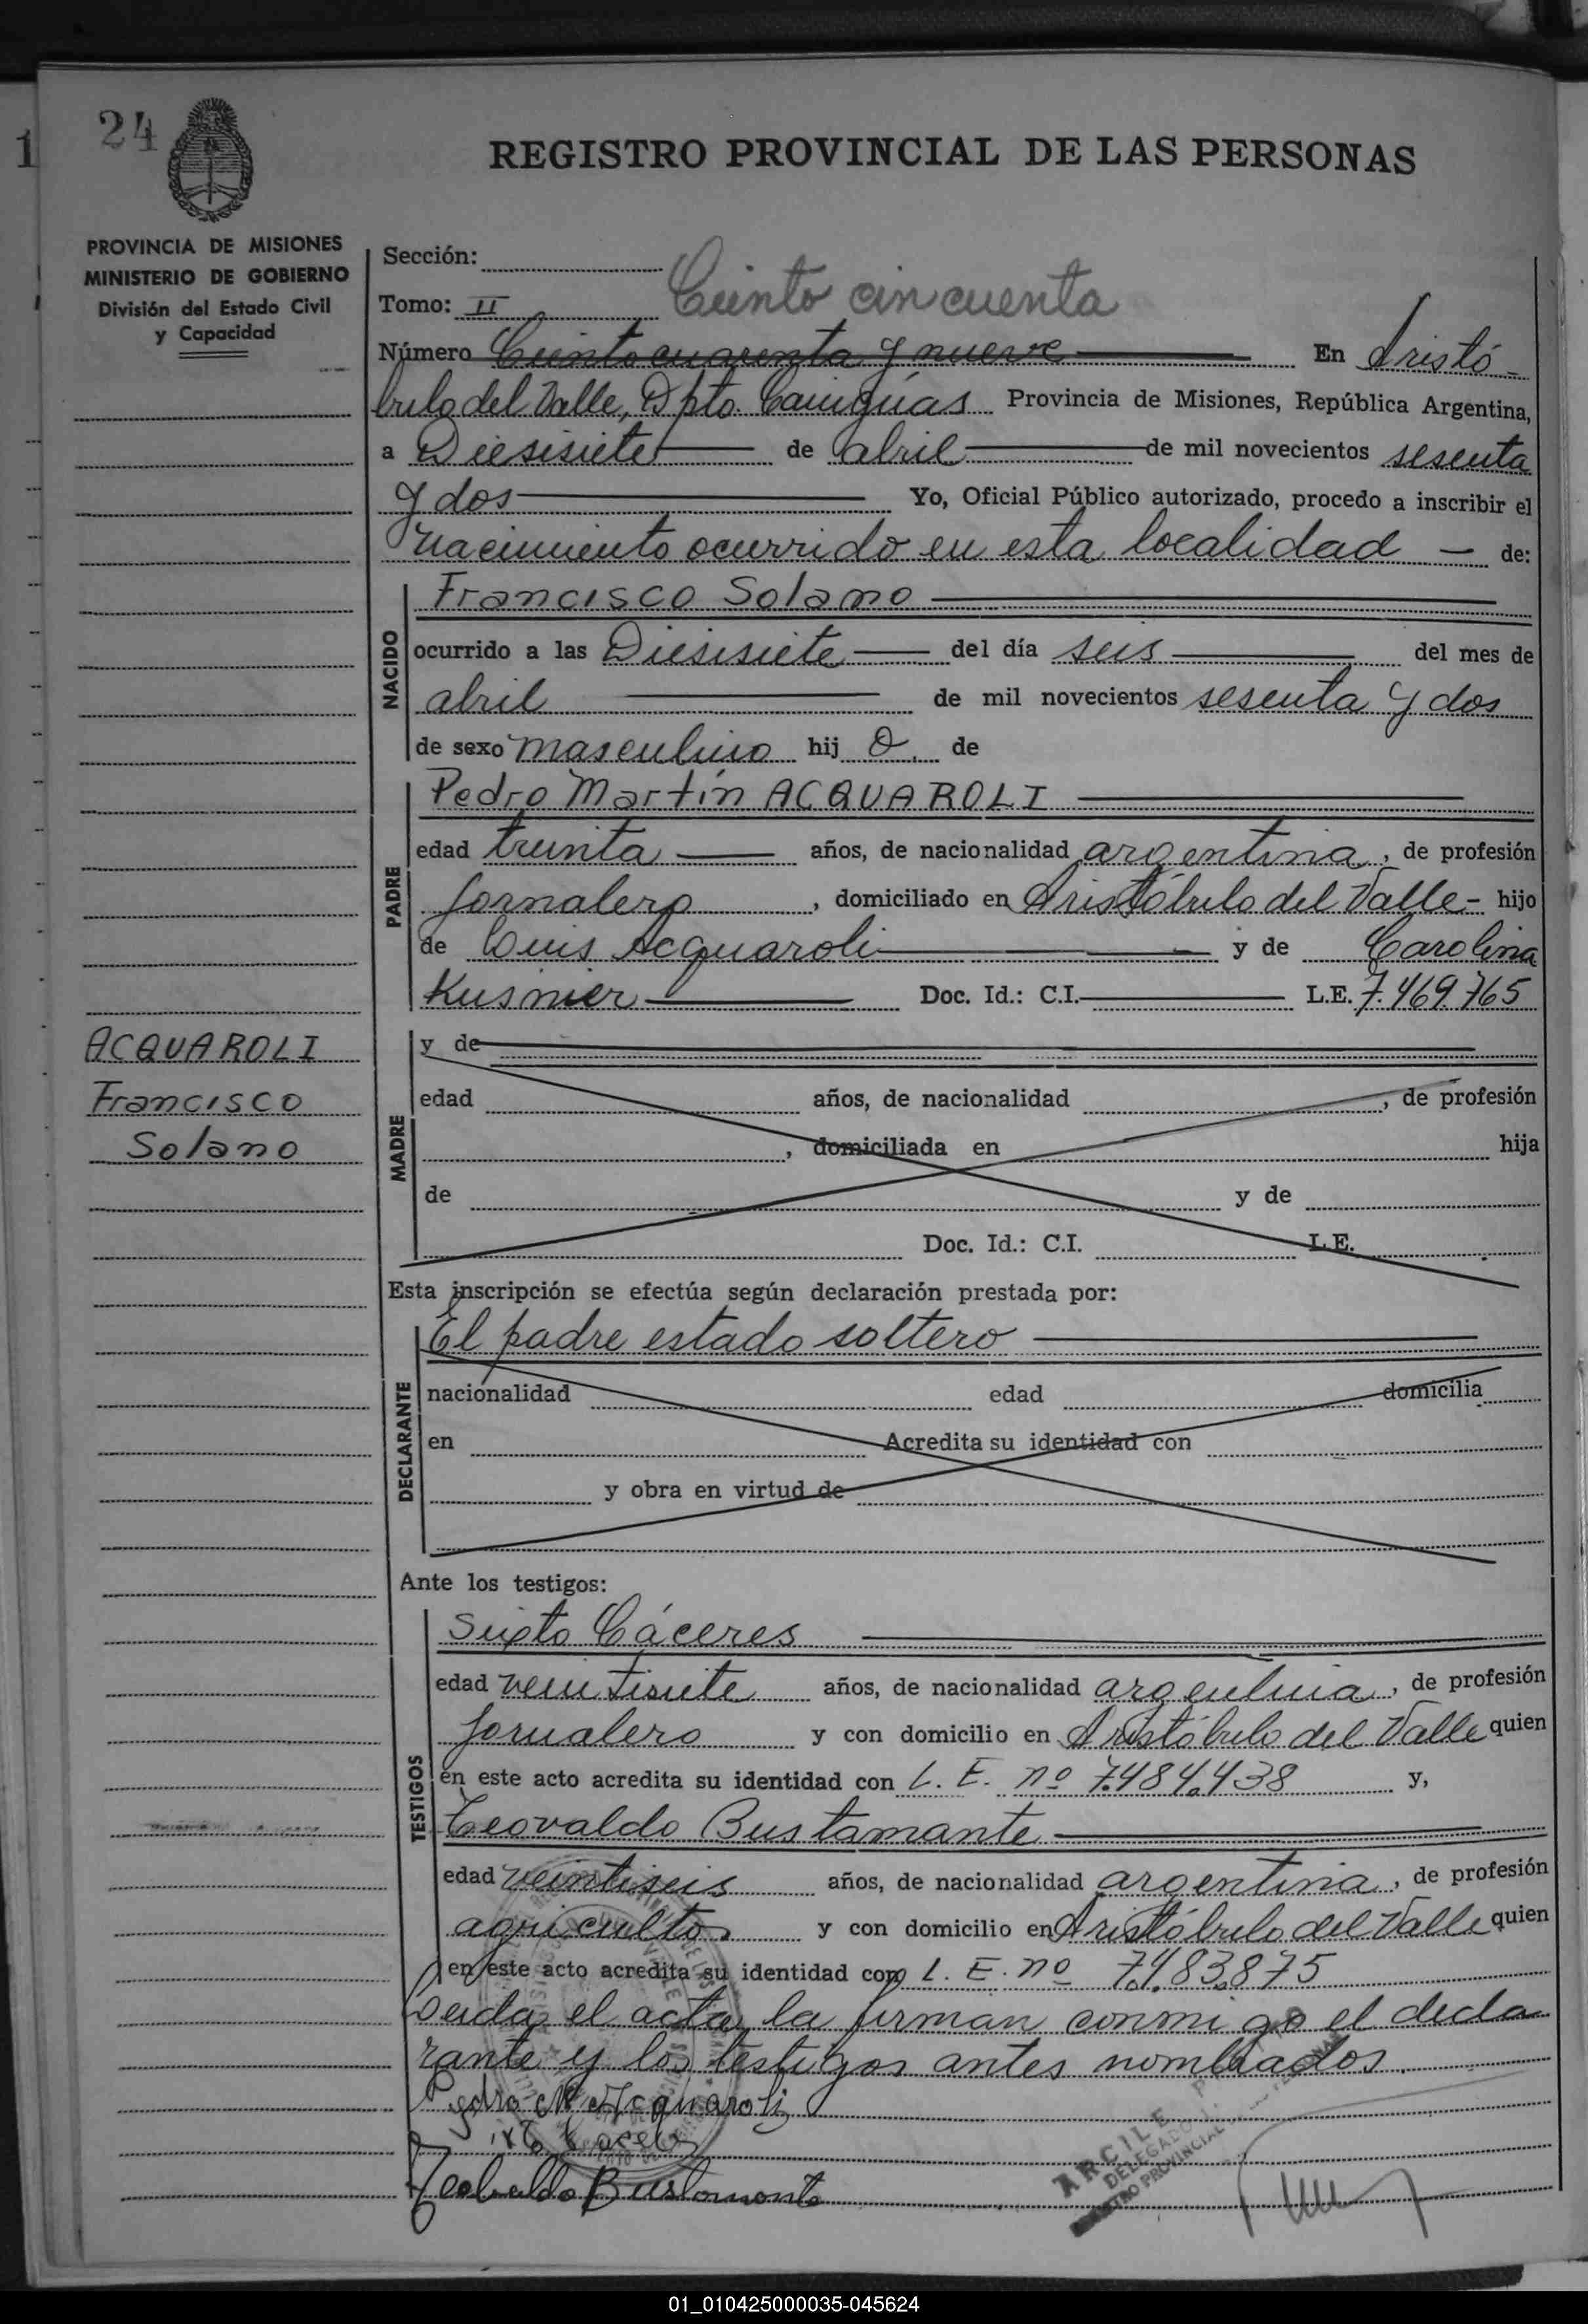 24
1
REGISTRO PROVINCIAL DE LAS PERSONAS
PROVINCIA DE MISIONES
MINISTERIO DE GOBIERNO
División del Estado Civil
y Capacidad
Sección:
Ciento cincuenta
Tomo: II
Número Ciento cuarenta y nueve En Aristó-
bulo del Valle, Dpto. Cainguás Provincia de Misiones, República Argentina,
a Diesisiete de abril de mil novecientos sesenta
y dos Yo, Oficial Público autorizado, procedo a inscribir el
nacimiento ocurrido en esta localidad — de:
NACIDO
Francisco Solano
ocurrido a las Diesisiete del día seis del mes de
abril de mil novecientos sesenta y dos
de sexo masculino hij o. de
PADRE
Pedro Martín ACQUAROLI
edad treinta años, de nacionalidad argentina, de profesión
Jornalero, domiciliado en Aristóbulo del Valle- hijo
de Luis Acquaroli y de Carolina
Kusnier Doc. Id.: C.I. L.E. 7.469.765
ACQUAROLI
Francisco
Solano
MADRE
y de
edad años, de nacionalidad , de profesión
, domiciliada en hija
de y de
Doc. Id.: C.I. L.E.
Esta inscripción se efectúa según declaración prestada por:
DECLARANTE
El padre estado soltero
nacionalidad edad domicilia
en Acredita su identidad con
y obra en virtud de
Ante los testigos:
TESTIGOS
Sixto Cáceres
edad veintisiete años, de nacionalidad argentina, de profesión
Jornalero y con domicilio en Aristóbulo del Valle quien
en este acto acredita su identidad con L. E. nº 7.484.438 y,
Teovaldo Bustamante
edad veintiseis años, de nacionalidad argentina, de profesión
agricultor y con domicilio en Aristóbulo del Valle quien
en este acto acredita su identidad con L. E. nº 7.483.875
Leida el acta la firman conmigo el decla
rante y los testigos antes nombrados.
Pedro M Acquaroli
Teobaldo Bustamante
ARCILE
DELEGADO
REGISTRO PROVINCIAL
01_010425000035-045624